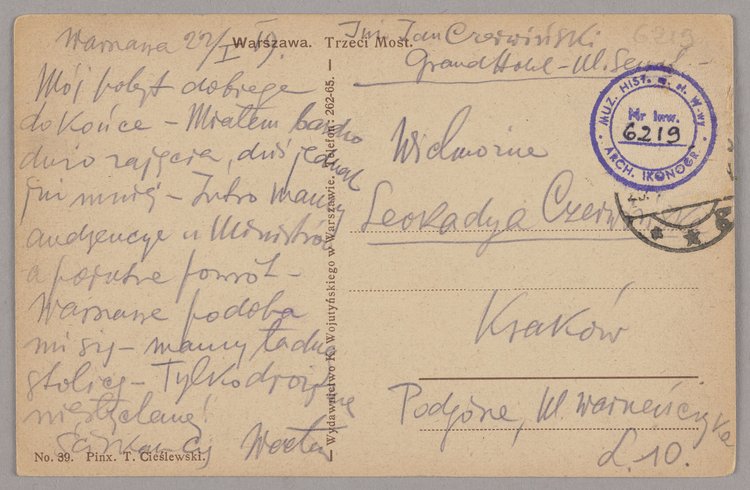 Warszawa 22/I
Warszawa. Trzeci Most.
Mój pobyt dobiega
do końca – Miałem bardzo
dużo zajęcia, dziś jednak
już mniej – Jutro mamy
audjencye u Ministrów
a pojutrze powrót –
Warszawa podoba
mi się – mamy ładną
stolicę – Tylko drożyzna
niesłychana!
Ściskam Cię
No. 39. Pinx. T. Cieślewski.
— Wydawnictwo K. Wojutyńskiego w Warszawie. Telefon: 262-65. —
Inż Jan Czerwiński
Grand Hotel – Ul.
6219
MUZ. HIST. m. st. W-wy
Nr inw.
6219
ARCH. IKONOGR.
Wielmożna
Leokadya
Kraków
Podgórze, Ul. Warneńczyka
L. 10.